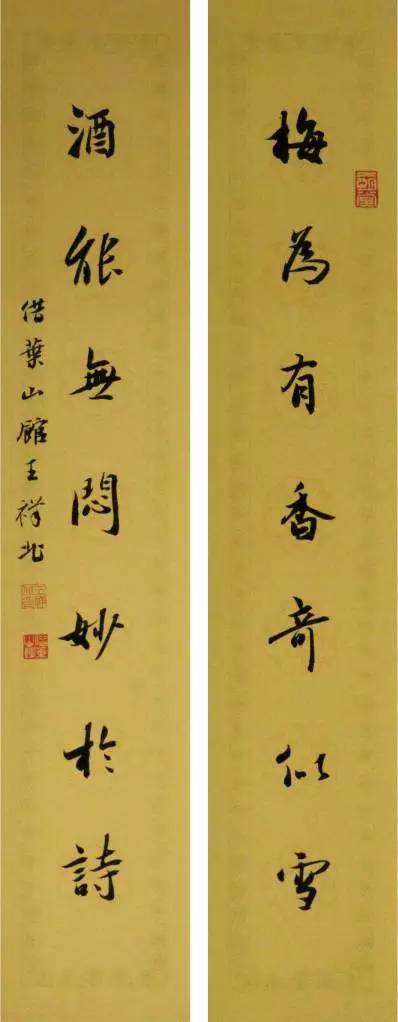 梅為有香奇似雪
酒能無悶妙於詩
借葉山館王祥北